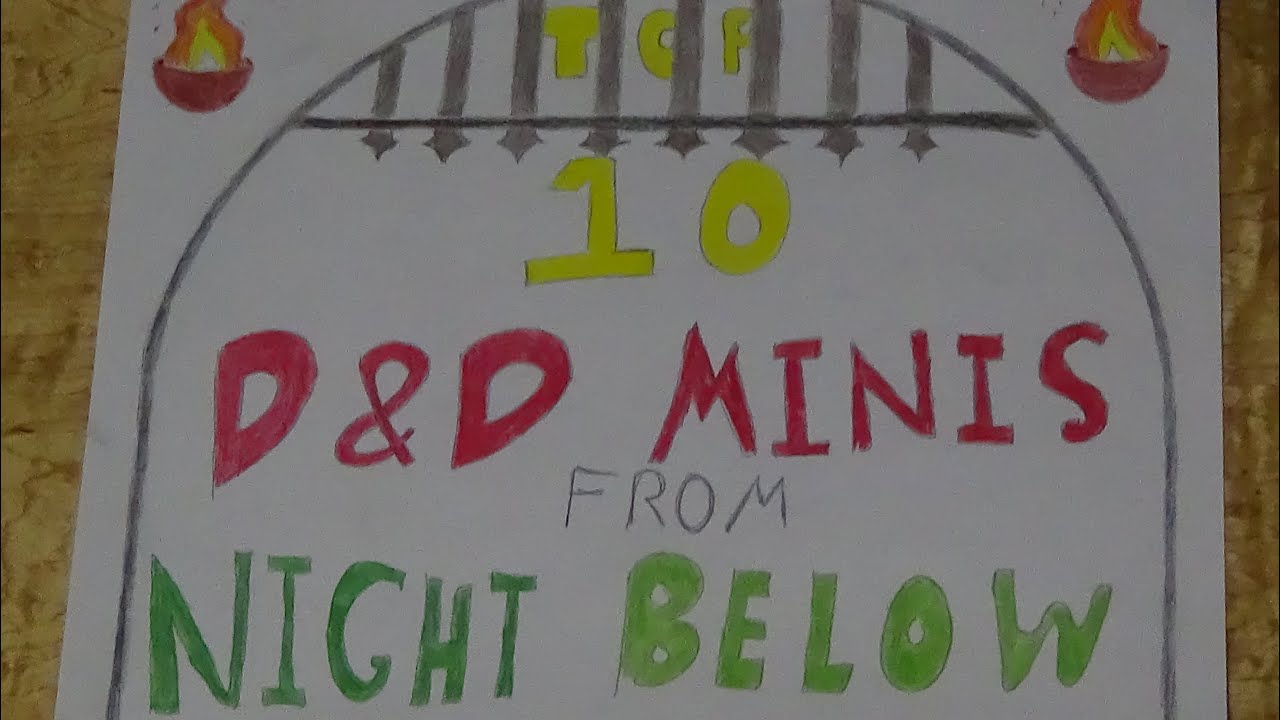 TOP
10
D&D MINIS
FROM
NIGHT BELOW